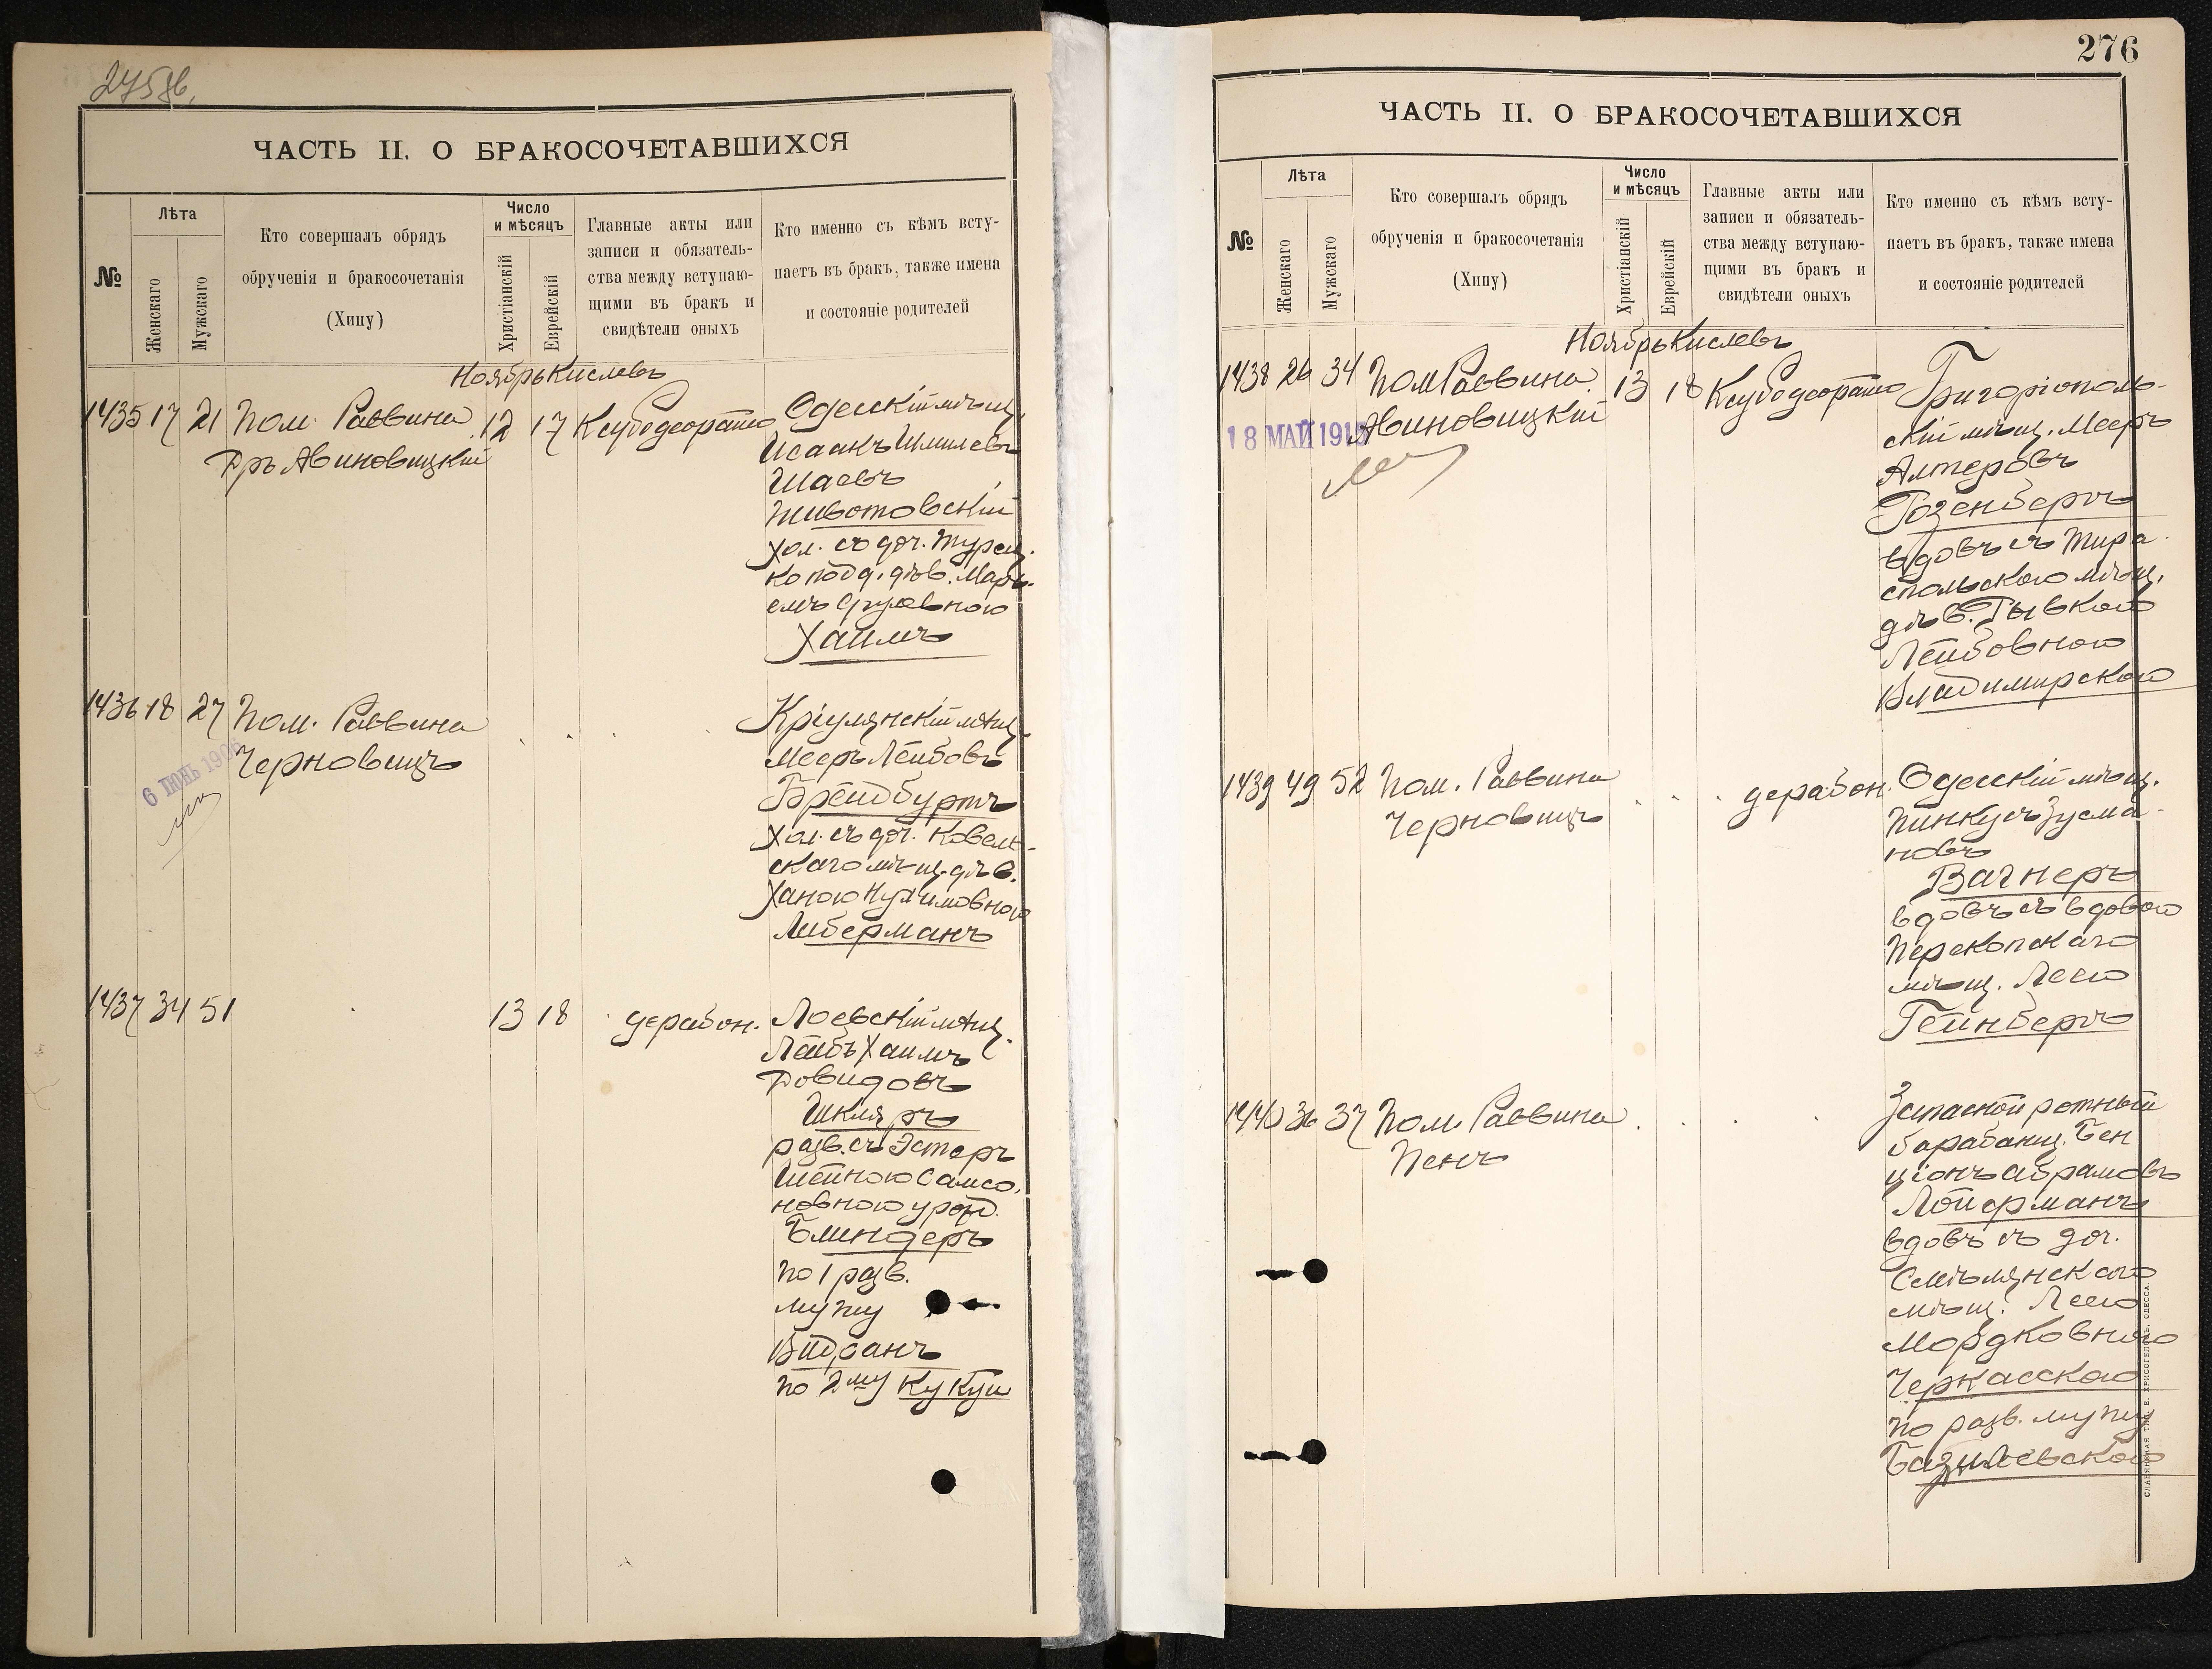 275 об.
ЧАСТЬ II. О БРАКОСОЧЕТАВШИХСЯ
№
Лѣта
Женскаго
Мужскаго
Кто совершалъ обрядъ
обрученія и бракосочетанія
(Хипу)
Число
и мѣсяцъ
Христіанскій
Еврейскій
Главные акты или
записи и обязатель-
ства между вступаю-
щими въ бракъ и
свидѣтели оныхъ
Кто именно съ кѣмъ всту-
паетъ въ бракъ, также имена
и состояніе родителей
Ноябрь Кислевъ
1435 17 21 Пом. Раввина 12 17
Дръ Авиновицкій
Одесскій мѣщ.
Исаакъ Шмилевъ
Шаевъ
Животовскій
хол. съ доч. турец-
ко подд. дѣв. Марь-
емъ Сруловною
Хаимъ
1436 18 27 Пом. Раввина
Черновицъ
6 ІЮНЬ 190
Кріулянскій мѣщ.
Мееръ Лейбовъ
Брейдбуртъ
Хол. съ доч. Ковель-
скаго мѣщ. дѣв.
Ханою Нухимовною
Либерманъ
1437 34 51 13 18 дерабон.
Лоевскій мѣщ.
Лейбъ Хаимъ
Довидовъ
Шкляръ
разв. съ Эстеръ
Шейною Самсо-
новною урожд.
Блиндеръ
по 1 разв.
мужу
по 2му Кукуи
276
ЧАСТЬ II. О БРАКОСОЧЕТАВШИХСЯ
№
Лѣта
Женскаго
Мужскаго
Кто совершалъ обрядъ
обрученія и бракосочетанія
(Хипу)
Число
и мѣсяцъ
Христіанскій
Еврейскій
Главные акты или
записи и обязатель-
ства между вступаю-
щими въ бракъ и
свидѣтели оныхъ
Кто именно съ кѣмъ всту-
паетъ въ бракъ, также имена
и состояніе родителей
Ноябрь Кислевъ
1438 26 34 Пом Раввина 13 18
Авиновицкій
18 МАЙ 191
Григоріополь-
скій мѣщ. Мееръ
Алтеровъ
Розенбергъ
вдовъ съ Тира-
спольскою мѣщ.
дѣв. Рывкою
Лейбовною
Владимирскою
1439 49 52 Пом. Раввина дерабон.
Черновицъ
Одесскій мѣщ.
Пинкусъ Зусма-
новъ
Вагнеръ
вдовъ съ вдовою
Перекопскаго
мѣщ. Леею
Гейнбергъ
1440 36 37 Пом. Раввина
Пенъ
Запасной ротный
барабанщ. Бен
ціонъ Абрамовъ
Лойерманъ
вдовъ съ доч.
Смѣлянскаго
мѣщ. Леею
Мордковною
Черкасскою
по разв. мужу
Базилевскою
СЛАВЯНСКАЯ ТИП. Е. ХРИСОГЕЛОСЪ, ОДЕССА.